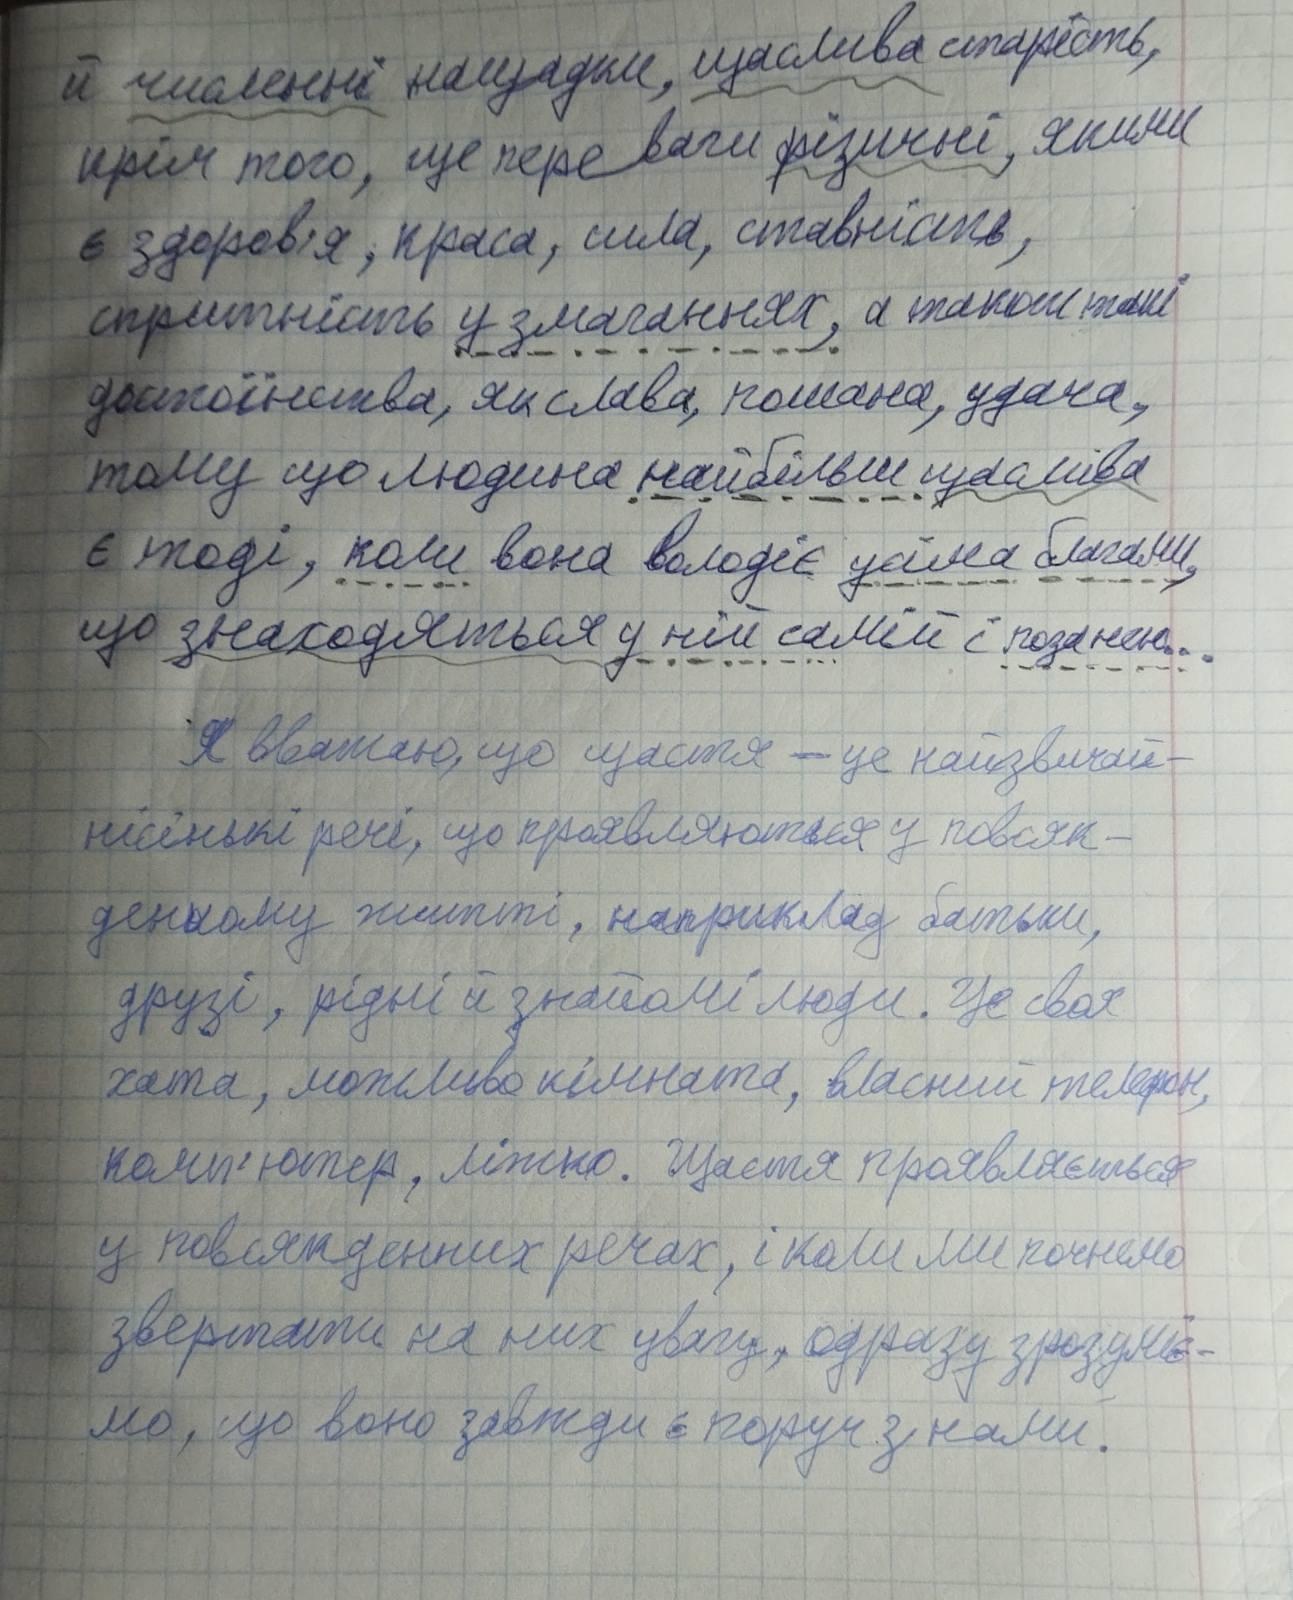 й численні нащадки, щаслива старість,
крім того, ще переваги фізичні, якими
є здоров'я, краса, сила, ставність,
спритність у змаганнях, а також такі
достоїнства, як слава, пошана, удача,
тому що людина найбільш щаслива
є тоді, коли вона володіє усіма благами,
що знаходяться у ній самій і поза нею...
Я вважаю, що щастя – це найзвичай-
нісінькі речі, що проявляються у повсяк-
денному житті, наприклад батьки,
друзі, рідні й знайомі люди. Це своя
хата, можливо кімната, власний телефон,
комп'ютер, ліжко. Щастя проявляється
у повсякденних речах, і коли ми почнемо
звертати на них увагу, одразу зрозуміє-
мо, що воно завжди є поруч з нами.